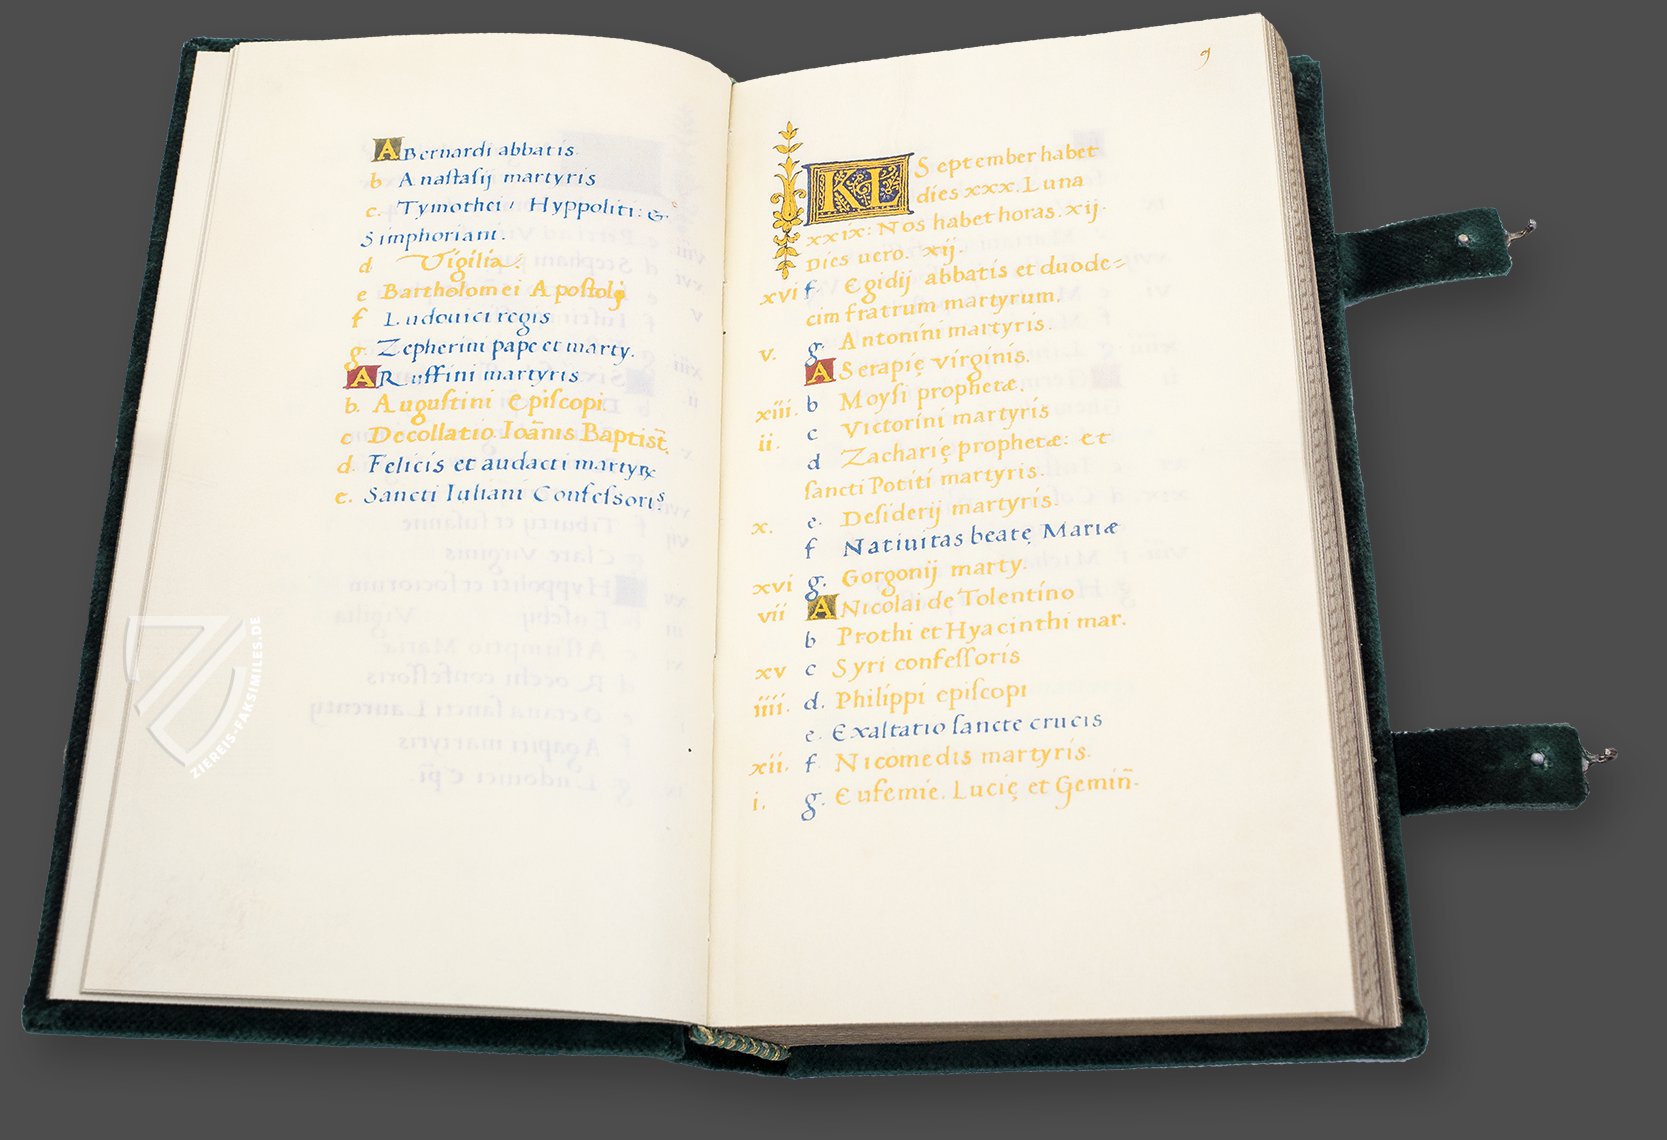 A Bernardi abbatis.
b Anastasij martyris
c. Tymothei, Hyppoliti: &
Simphoriani.
d Vigilia.
e Bartholomei Apostoli
f Ludouici regis
g. Zepherini pape et marty.
A Ruffini martyris
b. Augustini Episcopi
c Decollatio Ioānis Baptist̄.
d. Felicis et audacti martyrꝝ
e. Sancti Iuliani Confessoris.
9
KL September habet
dies xxx. Luna
xxix: Nos habet horas. xij.
Dies uero. xij.
xvi f. Egidij abbatis et duode=
cim fratrum martyrum.
v. g. Antonini martyris.
A Serapię virginis.
xiii. b Moysi prophetæ.
ii. c Victorini martyris
d Zacharię prophetæ: et
sancti Potiti martyris.
x. e. Desiderij martyris.
f Natiuitas beatę Mariæ
xvi g. Gorgonij marty.
vii A Nicolai de Tolentino
b Prothi et Hyacinthi mar.
xv c Syri confessoris
iiii. d. Philippi episcopi
e. Exaltatio sancte crucis
xii. f Nicomedis martyris.
i. g. Eufemie. Lucię et Gemin̄.
ZIEREIS-FAKSIMILES.DE